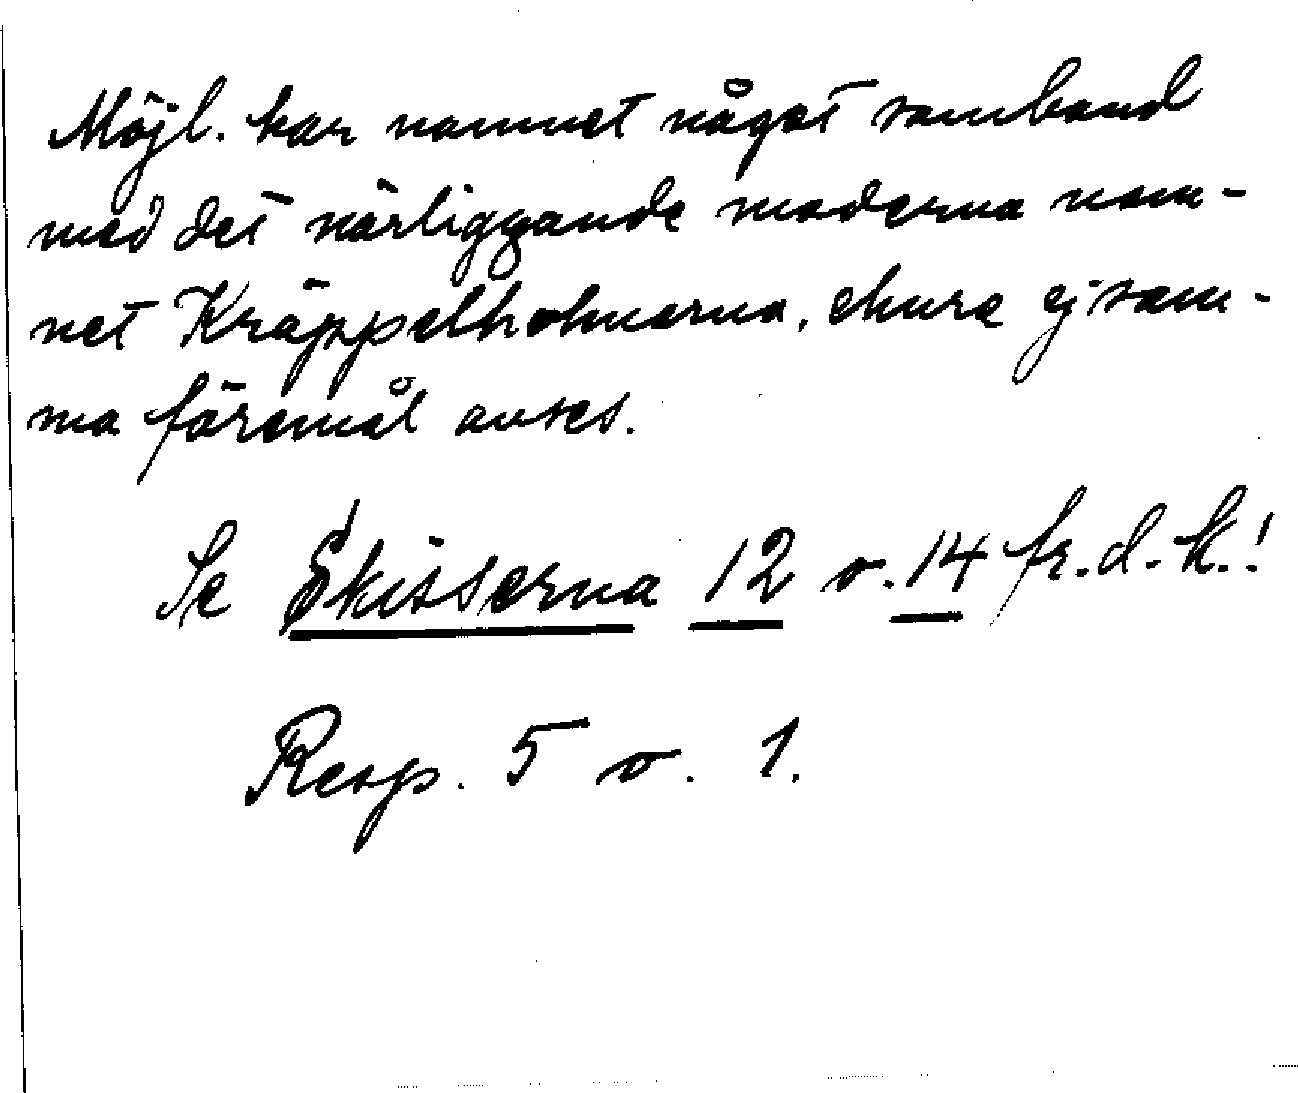 Möjl. har namnet något samband
med det närliggande moderna nam-
net Kräppelholmarna, ehuru ej sam-
ma föremål avses.
Se Skisserna 12 o. 14 fr. d. k.!
Resp. 5 o. 1.